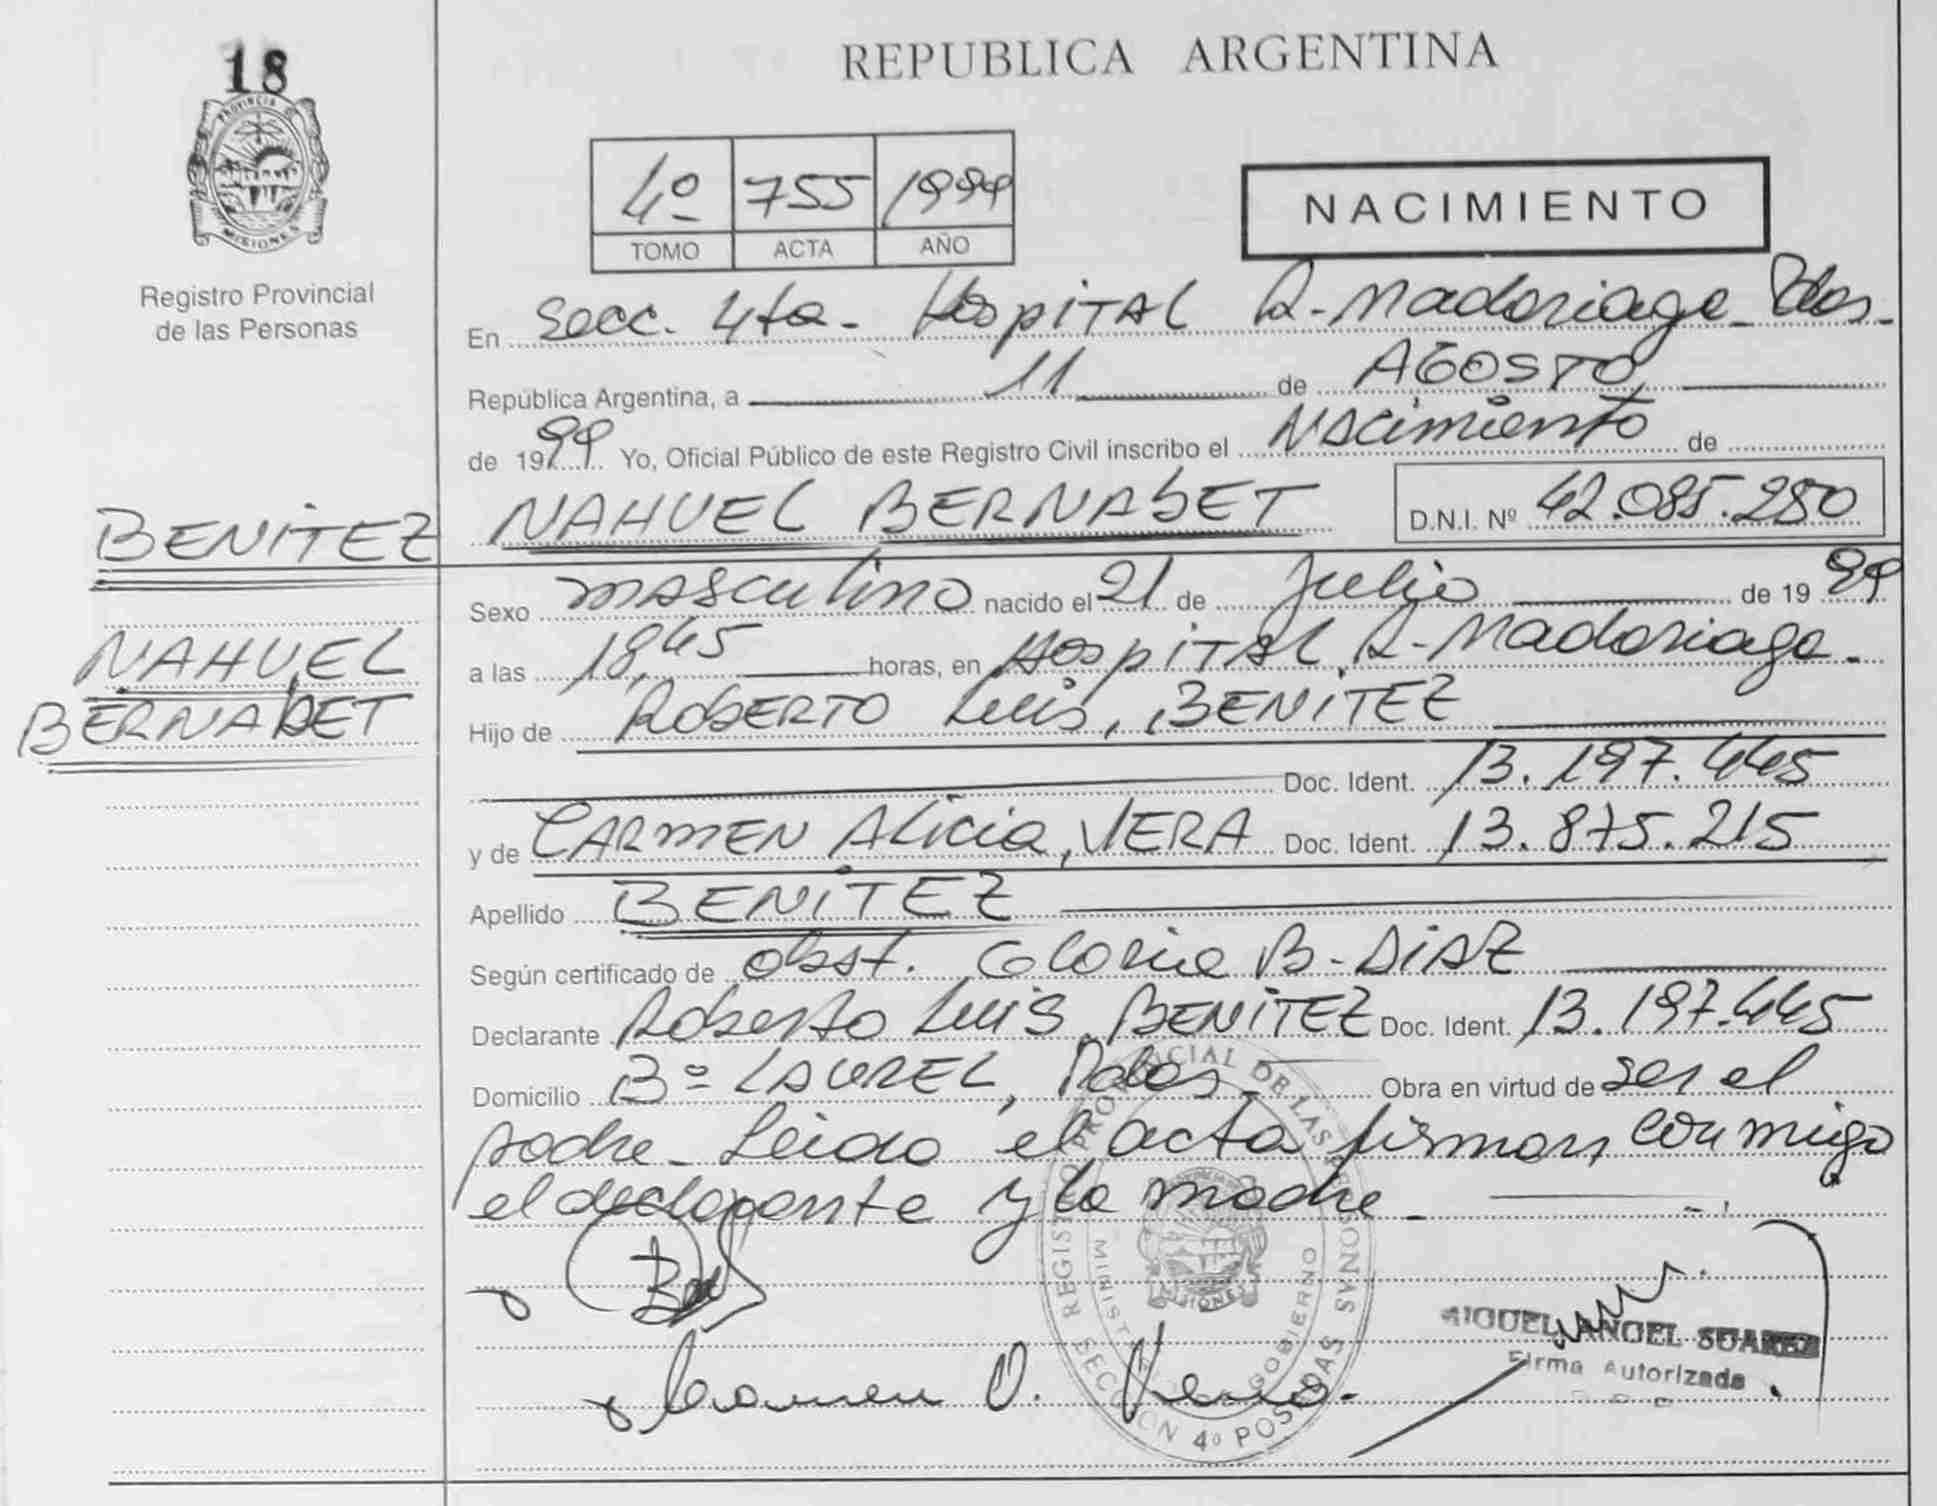 18
PROVINCIA DE
MISIONES
Registro Provincial
de las Personas
BENÍTEZ
NAHUEL
BERNABET
REPUBLICA ARGENTINA
4º 755 1999
TOMO ACTA AÑO
NACIMIENTO
En Secc. 4ta- Hospital R. Madariaga- Pdas-
República Argentina, a 11 de AGOSTO
de 1999 Yo, Oficial Público de este Registro Civil inscribo el Nacimiento de
NAHUEL BERNABET D.N.I. Nº 42.085.250
Sexo masculino nacido el 21 de Julio de 1999
a las 18,45 horas, en Hospital R. Madariaga-
Hijo de Roberto Luis, BENÍTEZ
Doc. Ident. 13.197.445
y de CARMEN Alicia, VERA Doc. Ident. 13.875.215
Apellido BENÍTEZ
Según certificado de obst. Gloria B. DIAZ
Declarante Roberto Luis, BENÍTEZ Doc. Ident. 13.197.445
Domicilio Bº LAUREL, Pdas- Obra en virtud de ser el
padre- Leida el acta firman conmigo
el declarante y la madre-
REGISTRO PROVINCIAL DE LAS PERSONAS
MINIST GOBIERNO
MISIONES
SECCION 4º POSADAS
MIGUEL ANGEL SUAREZ
Firma Autorizada
Carmen Vera